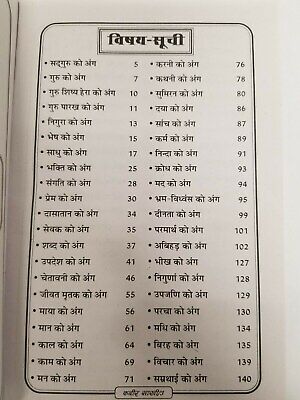 विषय-सूची
• सद्गुरु को अंग 5
• गुरु को अंग 7
• गुरु शिष्य हेरा को अंग 10
• गुरु पारख को अंग 11
• निगुरा को अंग 13
• भेष को अंग 15
• साधु को अंग 17
• भक्ति को अंग 25
• संगति को अंग 28
• प्रेम को अंग 30
• दासातान को अंग 34
• सेवक को अंग 35
• शब्द को अंग 37
• उपदेश को अंग 41
• चेतावनी को अंग 46
• जीवत मृतक को अंग 55
• माया को अंग 56
• मान को अंग 61
• काल को अंग 64
• काम को अंग 69
• मन को अंग 71
• करनी को अंग 76
• कथनी को अंग 78
• सुमिरन को अंग 80
• दया को अंग 86
• सांच को अंग 87
• कर्म को अंग 89
• निन्दा को अंग 91
• क्रोध को अंग 93
• मद को अंग 94
• भ्रम-विध्वंस को अंग 95
• दीनता को अंग 99
• परमार्थ को अंग 101
• अबिहड़ को अंग 102
• भीख को अंग 127
• निगुणां को अंग 128
• उपजणि को अंग 129
• परचा को अंग 130
• मधि को अंग 134
• बिरह को अंग 135
• विचार को अंग 139
• सम्रथाई को अंग 140
कबीर साखी